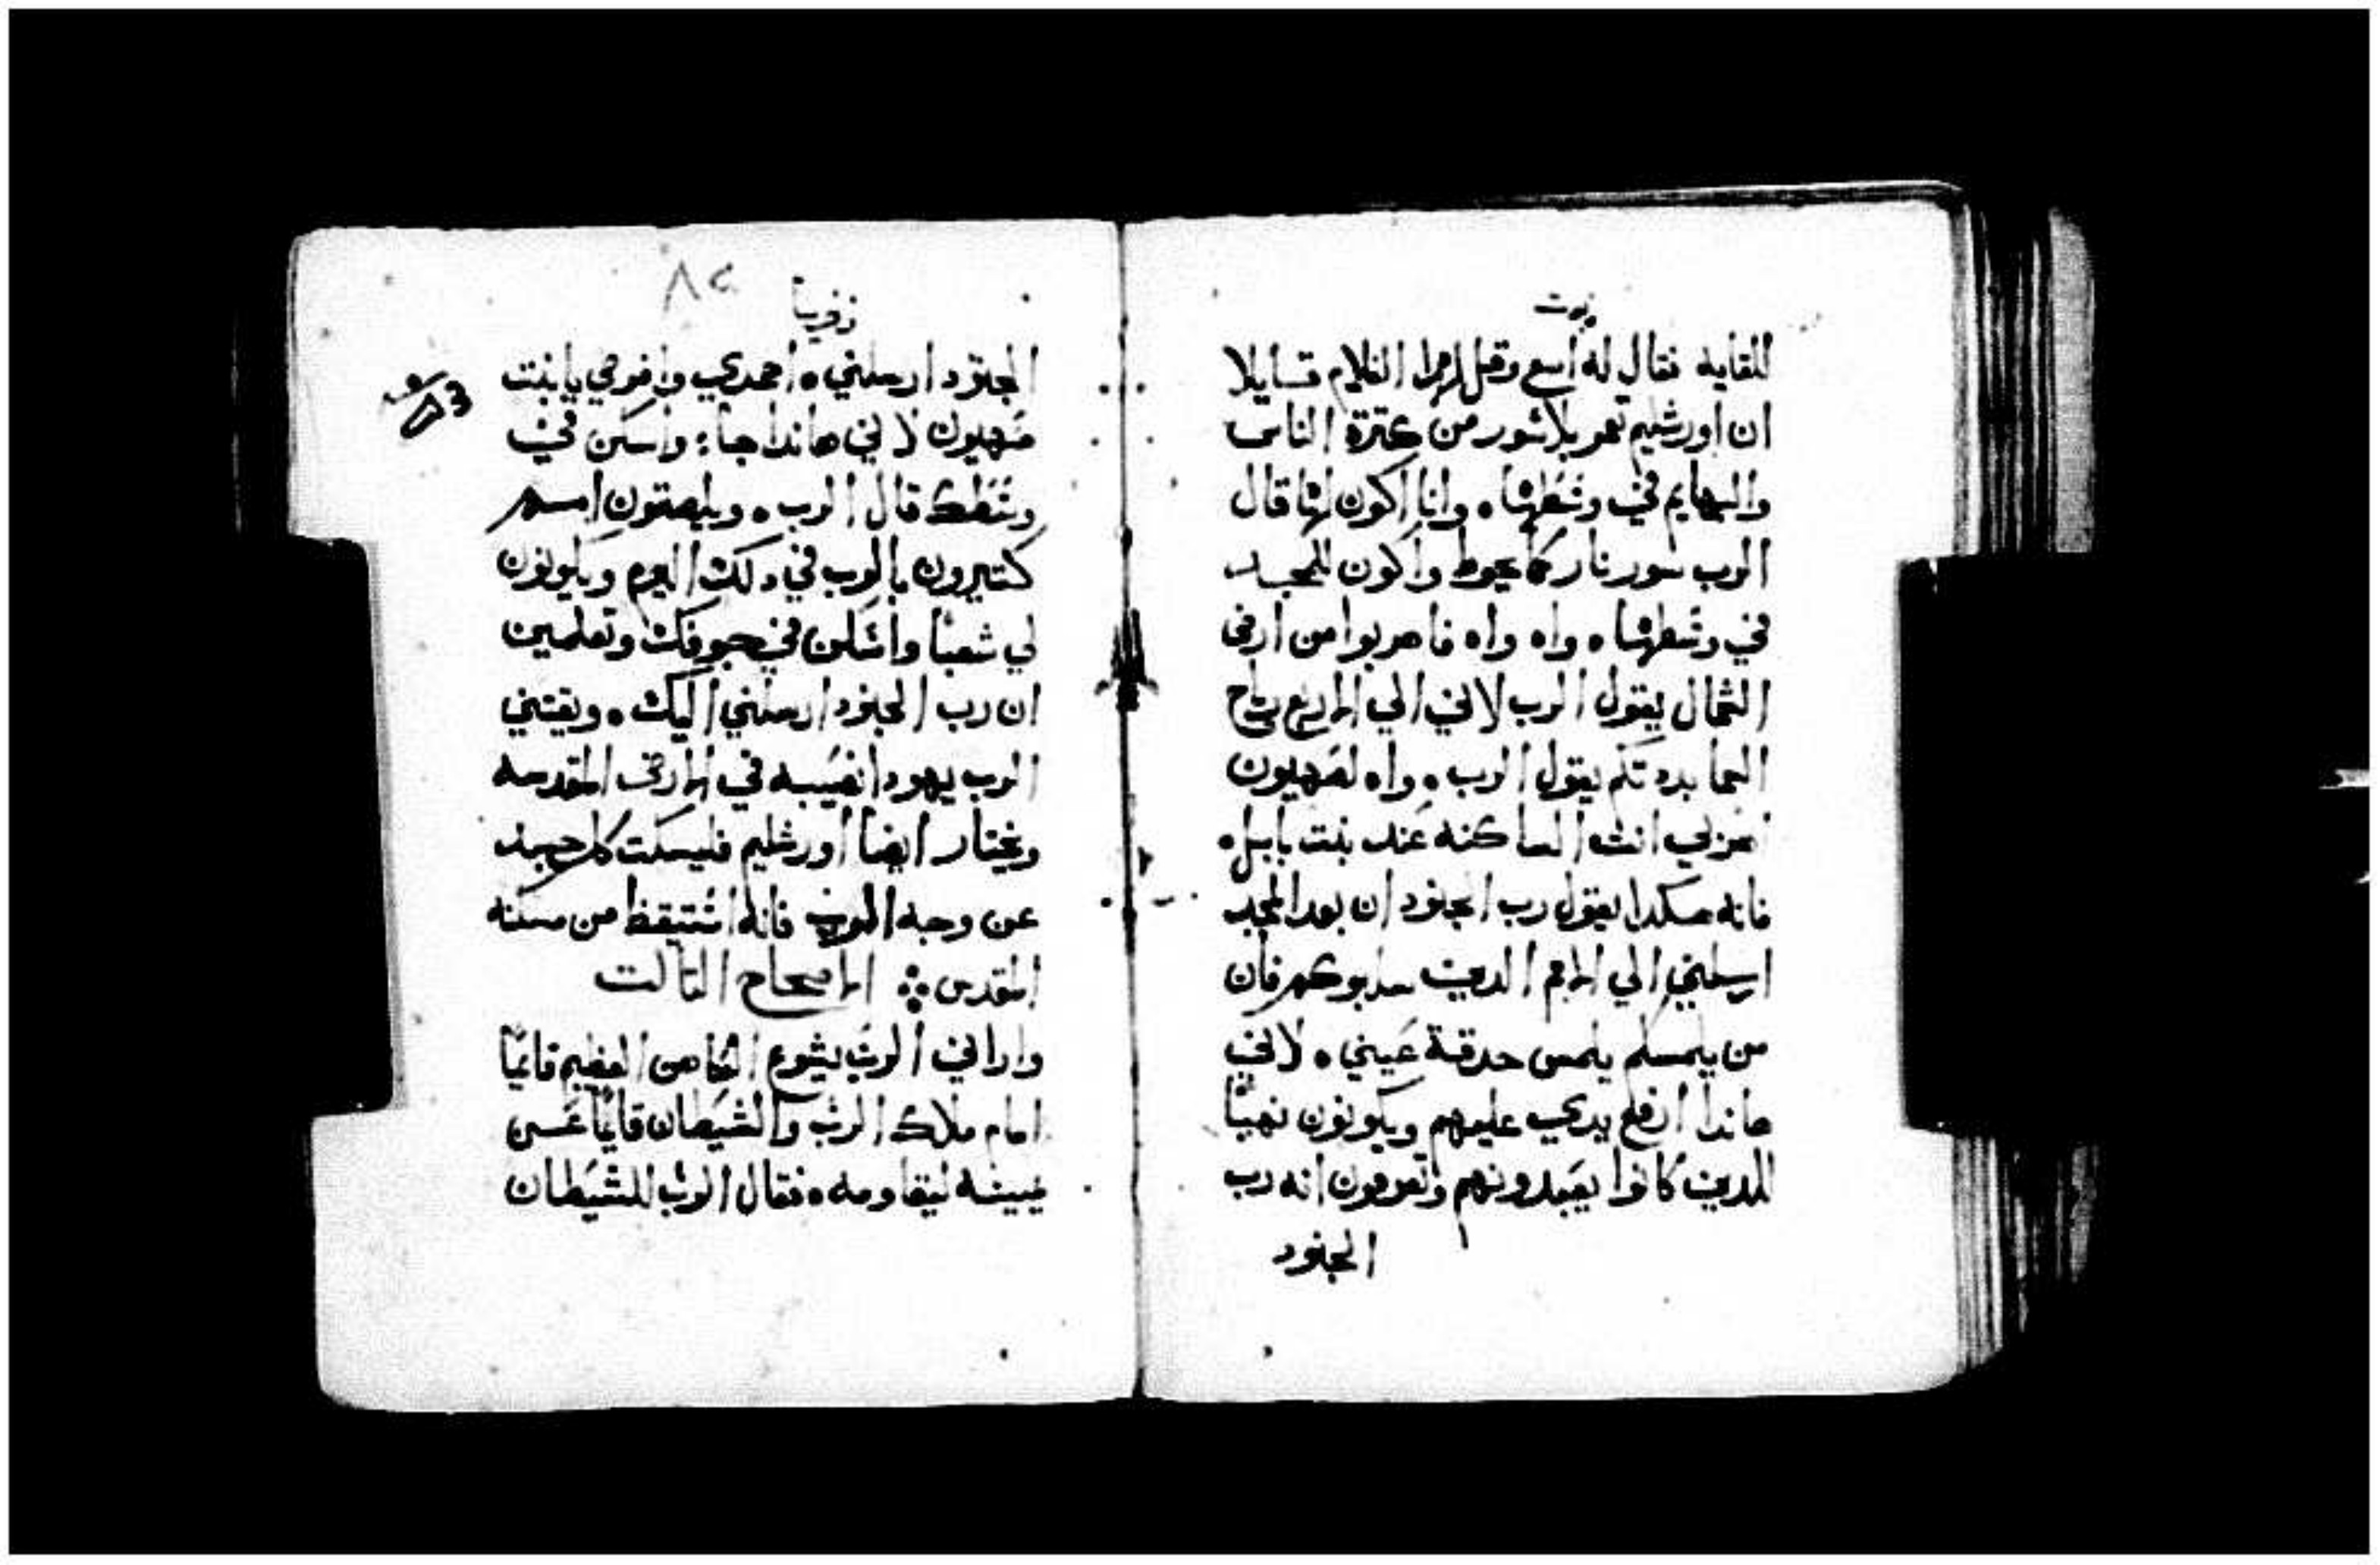 نبوت
للقايه فقال له اسع وقل لهدا الغلام قسايلا
ان اورشليم تعمر بلا سور من كترة الناس
والبهايم في وسطها . وانا اكون لها قال
الرب سور نار كما يحوط واكون للمجد
في وسطها . واه واه فاهربوا من ارض
الشمال يقول الرب لاني الي الاربع رياح
السما بددتكم يقول الرب . واه لصهيون
اهربي انت الساكنه عند بنت بابل .
فانه هكدا يقول رب الجنود ان بعد المجد
ارسلني الي الامم الدين سلبوكم فان
من يلمسكم يلمس حدقة عيني . لاني
هاندا ارفع يدي عليهم ويكونون نهبًا
للدين كانوا يعبدونهم وتعرفون انه رب
الجنود
٨٢
زخريا
الجنود ارسلني . احمدي وافرحي يابنت
صهيون لاني هاندا جاء واسكن في
وسطك قال الرب . ويلصقون امم
كتيرون بالرب في دلك اليوم ويكونون
لي شعبًا واسكن في جوفك وتعلمين
ان رب الجنود ارسلني اليك . ويقتني
الرب يهودا نصيبه في الارض المقدسه
ويختار ايضا اورشليم فليسكت كل جسد
عن وجه الرب فانه استيقظ من مسكنه
المقدس ؞ الاصحاح التالت
واراني الرب يشوع الكاهن العظيم قايمًا
امام ملاك الرب والشيطان قايمًا عن
يمينه ليقاومه . فقال الرب للشيطان